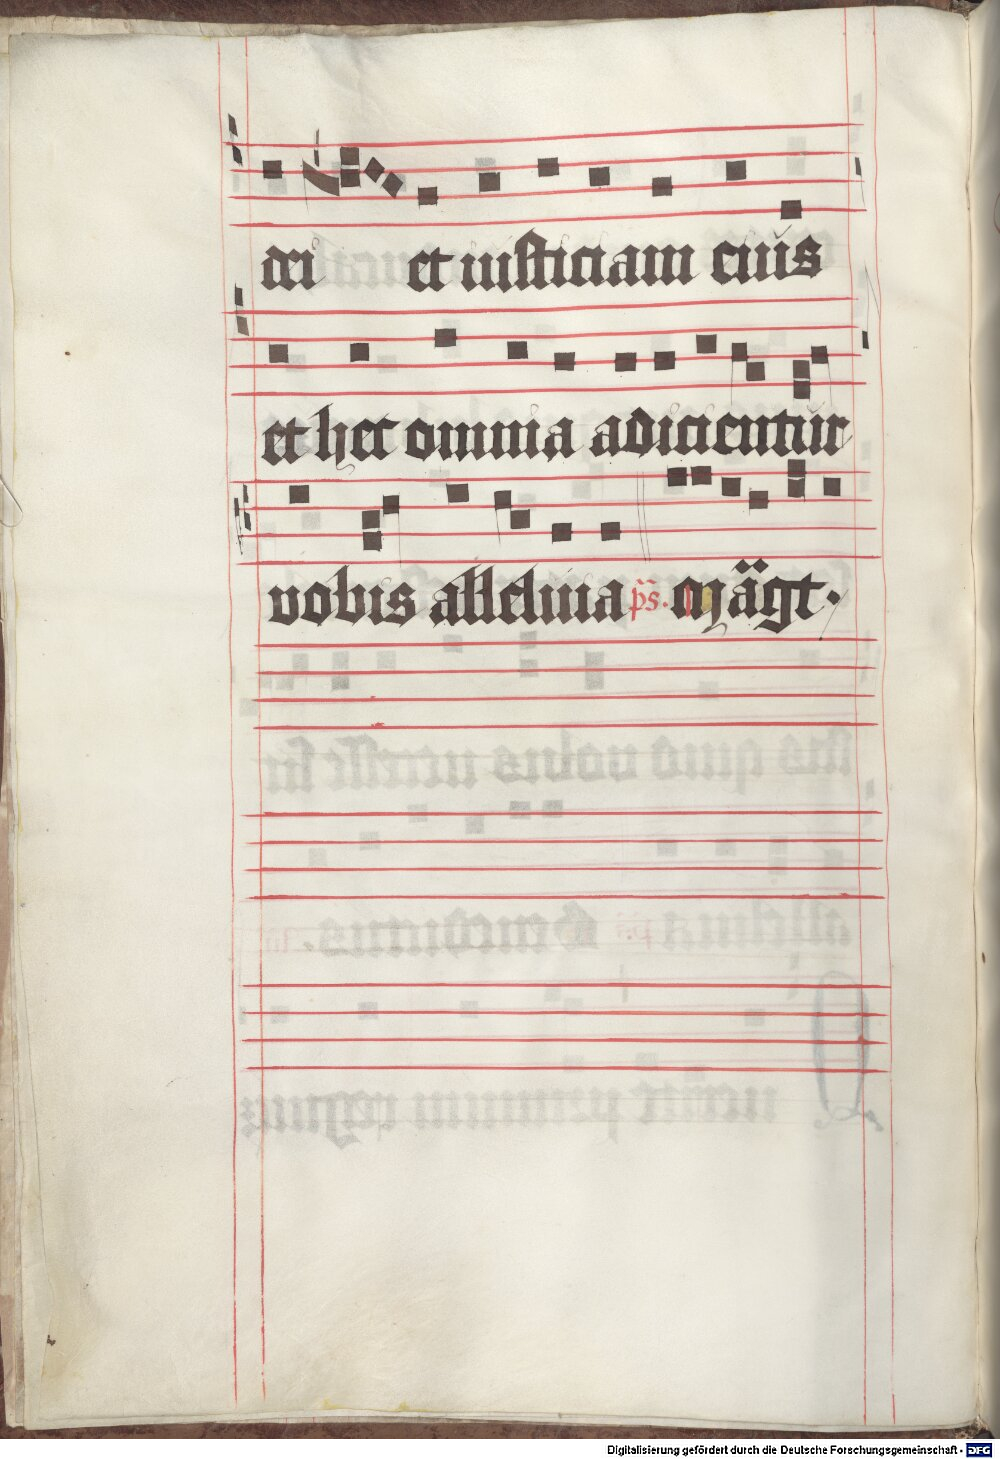 dei et iusticiam eius
et hec omnia adicientur
vobis alleluia ps. Magt.
Digitalisierung gefördert durch die Deutsche Forschungsgemeinschaft - DFG